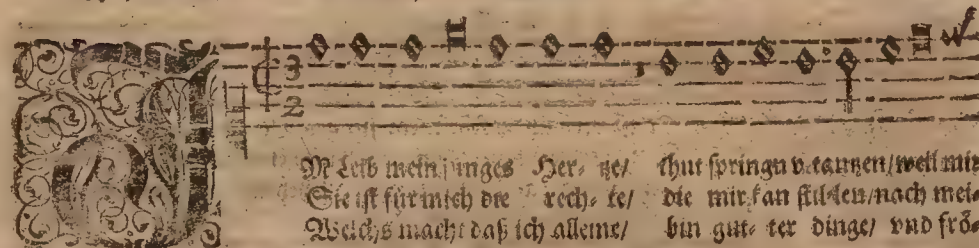 3
2
M Leib mein junges Her- tze/ thut springn v. tantzen/weil mir
Sie ist für mich die rech- te/ die mir kan still-len/nach mei-
Welchs macht daß ich alleine/ bin gut- ter dinge/ vnd frö-